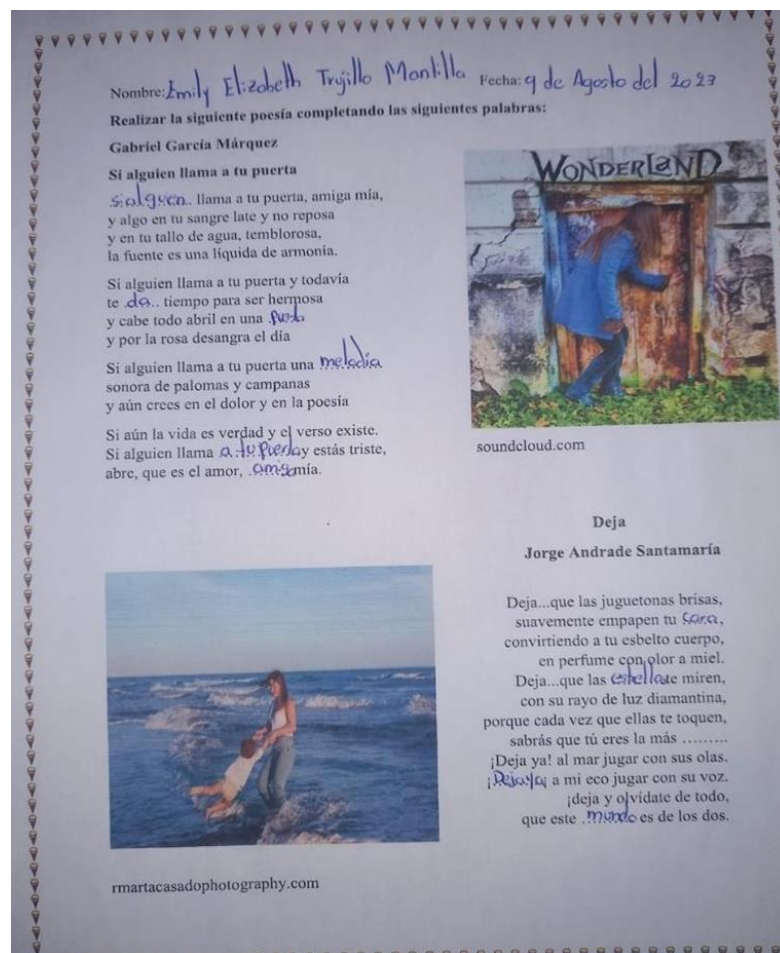 Nombre: Emily Elizabeth Trujillo Montilla Fecha: 9 de Agosto del 2023
Realizar la siguiente poesía completando las siguientes palabras:
Gabriel García Márquez
Si alguien llama a tu puerta
si alguien.. llama a tu puerta, amiga mía,
y algo en tu sangre late y no reposa
y en tu tallo de agua, temblorosa,
la fuente es una líquida de armonía.
Si alguien llama a tu puerta y todavía
te .da.. tiempo para ser hermosa
y cabe todo abril en una
y por la rosa desangra el día
Si alguien llama a tu puerta una melodía
sonora de palomas y campanas
y aún crees en el dolor y en la poesía
Si aún la vida es verdad y el verso existe.
Si alguien llama a tu puerta y estás triste,
abre, que es el amor, .amiga mía.
WONDERLaND
soundcloud.com
Deja
Jorge Andrade Santamaría
Deja...que las juguetonas brisas,
suavemente empapen tu cara,
convirtiendo a tu esbelto cuerpo,
en perfume con olor a miel.
Deja...que las estrellas te miren,
con su rayo de luz diamantina,
porque cada vez que ellas te toquen,
sabrás que tú eres la más .........
¡Deja ya! al mar jugar con sus olas.
¡Deja ya¡ a mi eco jugar con su voz.
¡deja y olvídate de todo,
que este .mundo es de los dos.
rmartacasadophotography.com